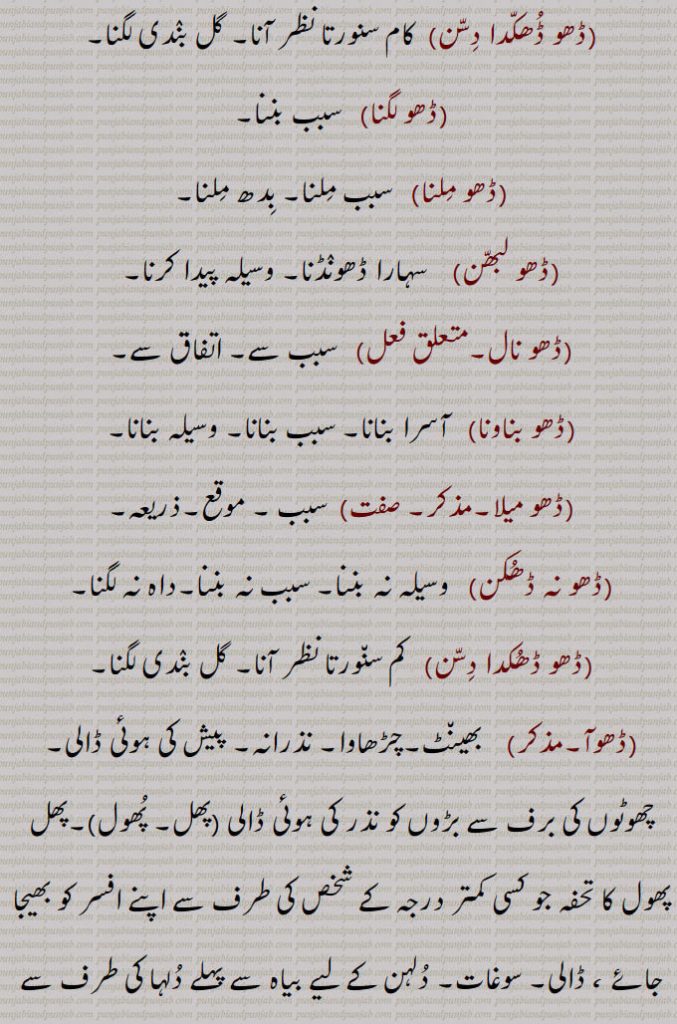 (ڈھو ڈُھکّدا دِسّن) کام سنورتا نظر آنا۔ گل بنْدی لگنا۔
(ڈھو لگنا) سبب بننا۔
(ڈھو مِلنا) سبب مِلنا۔ بِدھ مِلنا۔
(ڈھو لبھّن) سہارا ڈھونْڈنا۔ وسیلہ پیدا کرنا۔
(ڈھو نال۔متعلق فعل) سبب سے۔ اتفاق سے۔
(ڈھو بناونا) آسرا بنانا۔ سبب بنانا۔ وسیلہ بنانا۔
(ڈھو میلا۔مذکر۔ صفت) سبب ۔ موقع۔ذریعہ۔
(ڈھو نہ ڈھُکن) وسیلہ نہ بننا۔ سبب نہ بننا۔داہ نہ لگنا۔
(ڈھو ڈھُکدا دِسّن) کم سنّورتا نظر آنا۔ گل بنْدی لگنا۔
(ڈھوآ۔مذکر) بھینّٹ۔چڑھاوا۔ نذرانہ۔ پیش کی ہوئی ڈالی۔
چھوٹوں کی برف سے بڑوں کو نذر کی ہوئی ڈالی (پھل۔ پُھول)۔پھل
پھول کا تحفہ جو کسی کمتر درجہ کے شخص کی طرف سے اپنے افسر کو بھیجا
جائے ، ڈالی۔ سوغات۔ دُلہن کے لیے بیاہ سے پہلے دُلہا کی طرف سے